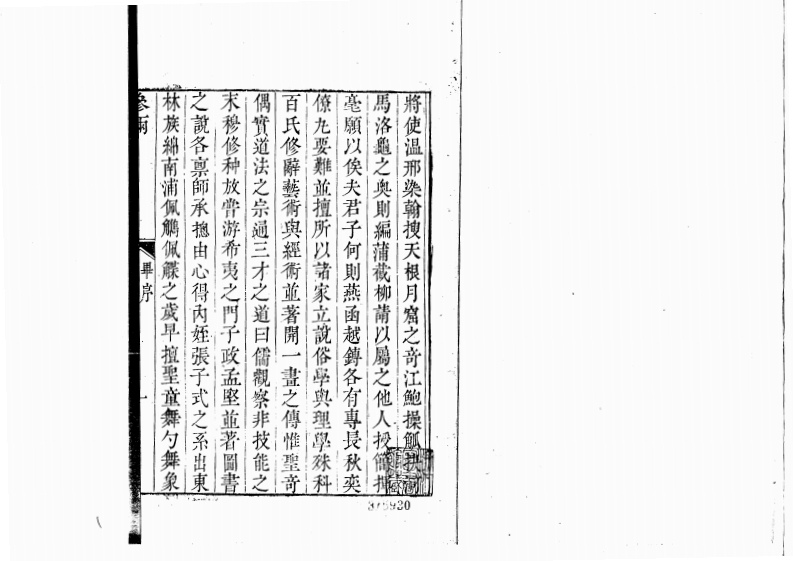 將使温邢染翰搜天根月窟之竒江鮑操觚抉
馬洛龜之奥則編蒲截柳請以屬之他人授簡
毫願以俟夫君子何則燕函越鏄各有專長秋奕
僚九要難並擅所以諸家立說俗學與理學殊科
百氏修辭藝術與經術並著開一畫之傳惟聖竒
偶實道法之宗通三才之道曰儒觀察非技能之
末穆修种放嘗游希夷之門子政孟堅並著圖書
之說各禀師承摠由心得內姪張子式之系出東
林族綿南浦佩觿佩韘之歲早擅聖童舞勺舞象
參兩
畢序
一